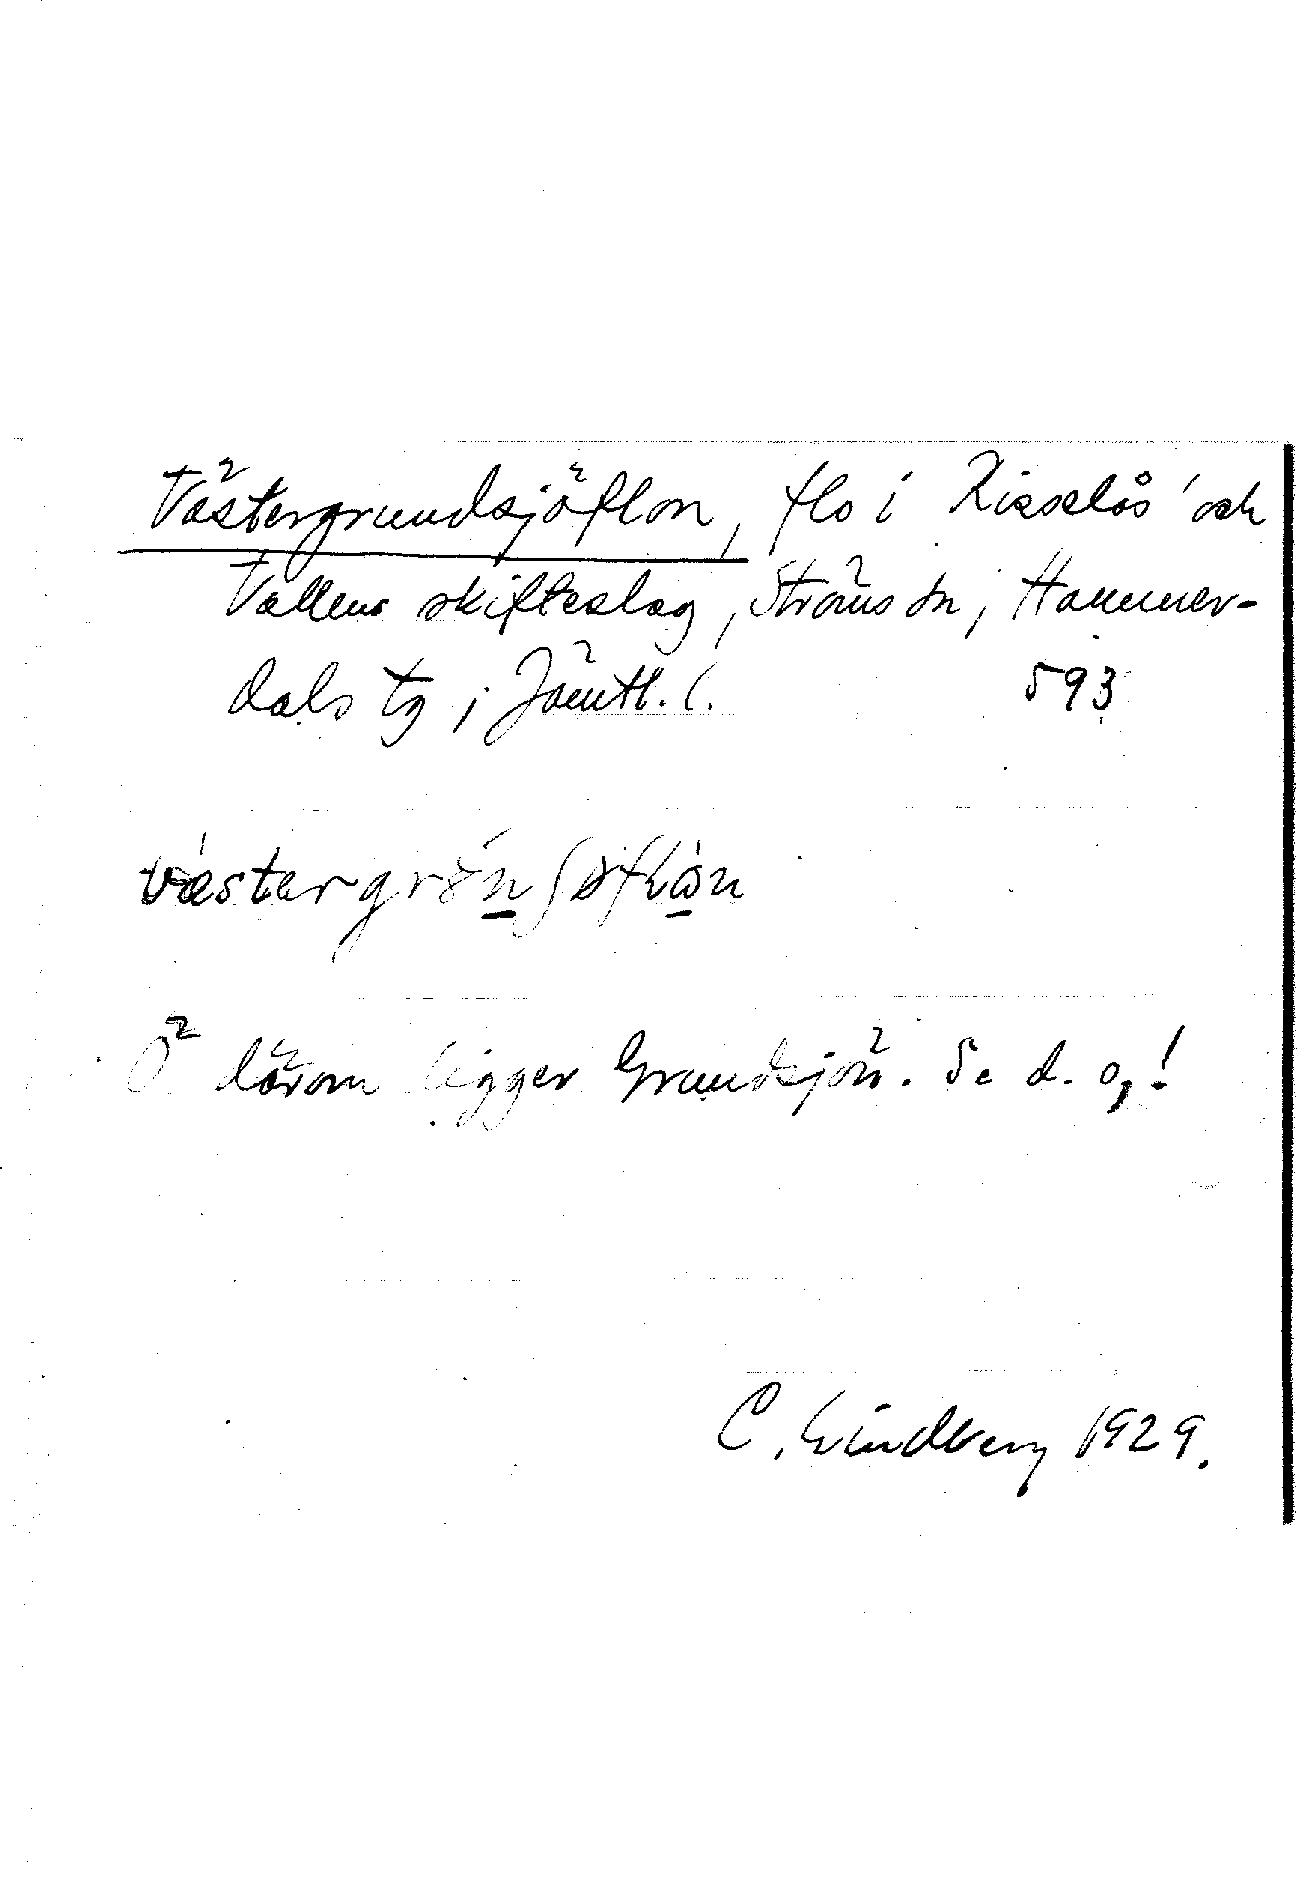 Västergrundsjöflon, flo i Risselås' och
Vallens skifteslag, Ströms sn, Hammer-
dals tg, Jämtl. l. 593
Ö därom ligger Grundsjön. Se d. o,!
C. Lindberg 1929.